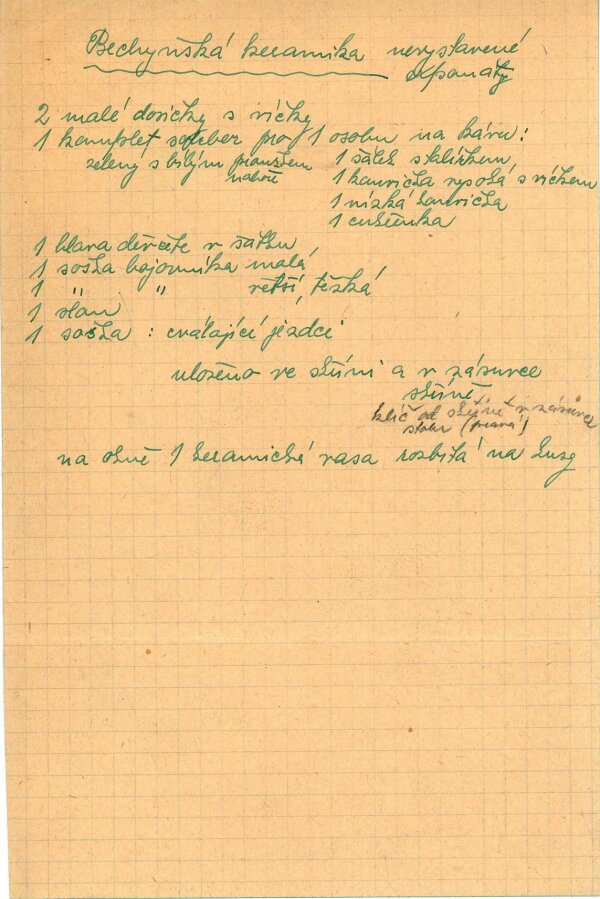 Bechyňská keramika nevystavené
exponáty
2 malé dosičky s víčky
1 komplet souber pro 1 osobu na kávu:
zelený s bílým proužkem
nahoře
1 šálek s talířkem,
1 konvička vysoká s víčkem
1 nízká konvička
1 cukřenka
1 hlava děvčete v šátku
1 soška bojovníka malá,
1 " " větší, těžká,
1 slon
1 soška : cválající jezdci
uloženo ve skříni a v zásuvce
skříně
klíč od skříně v zásuvce
stolu (pravá)
na okně 1 keramická vasa rozbitá na kusy